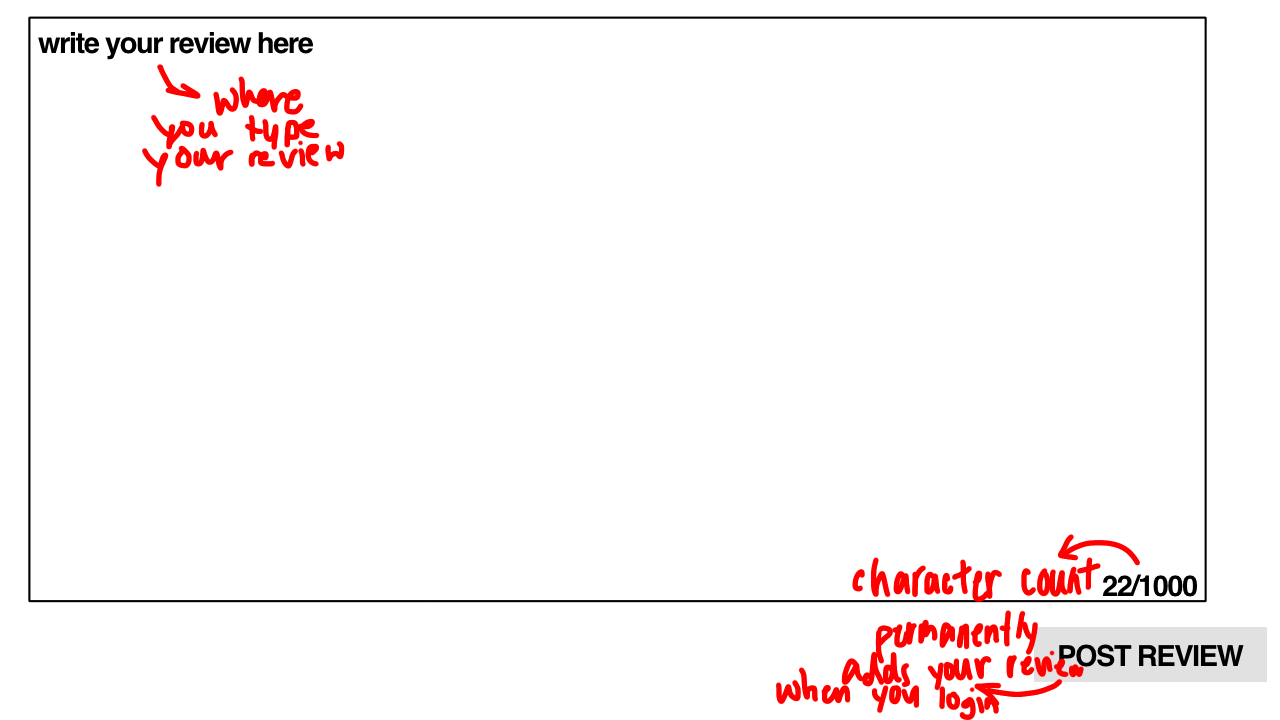 write your review here
where
you type
your review
character count
22/1000
permanently
adds your review
when you login
POST REVIEW